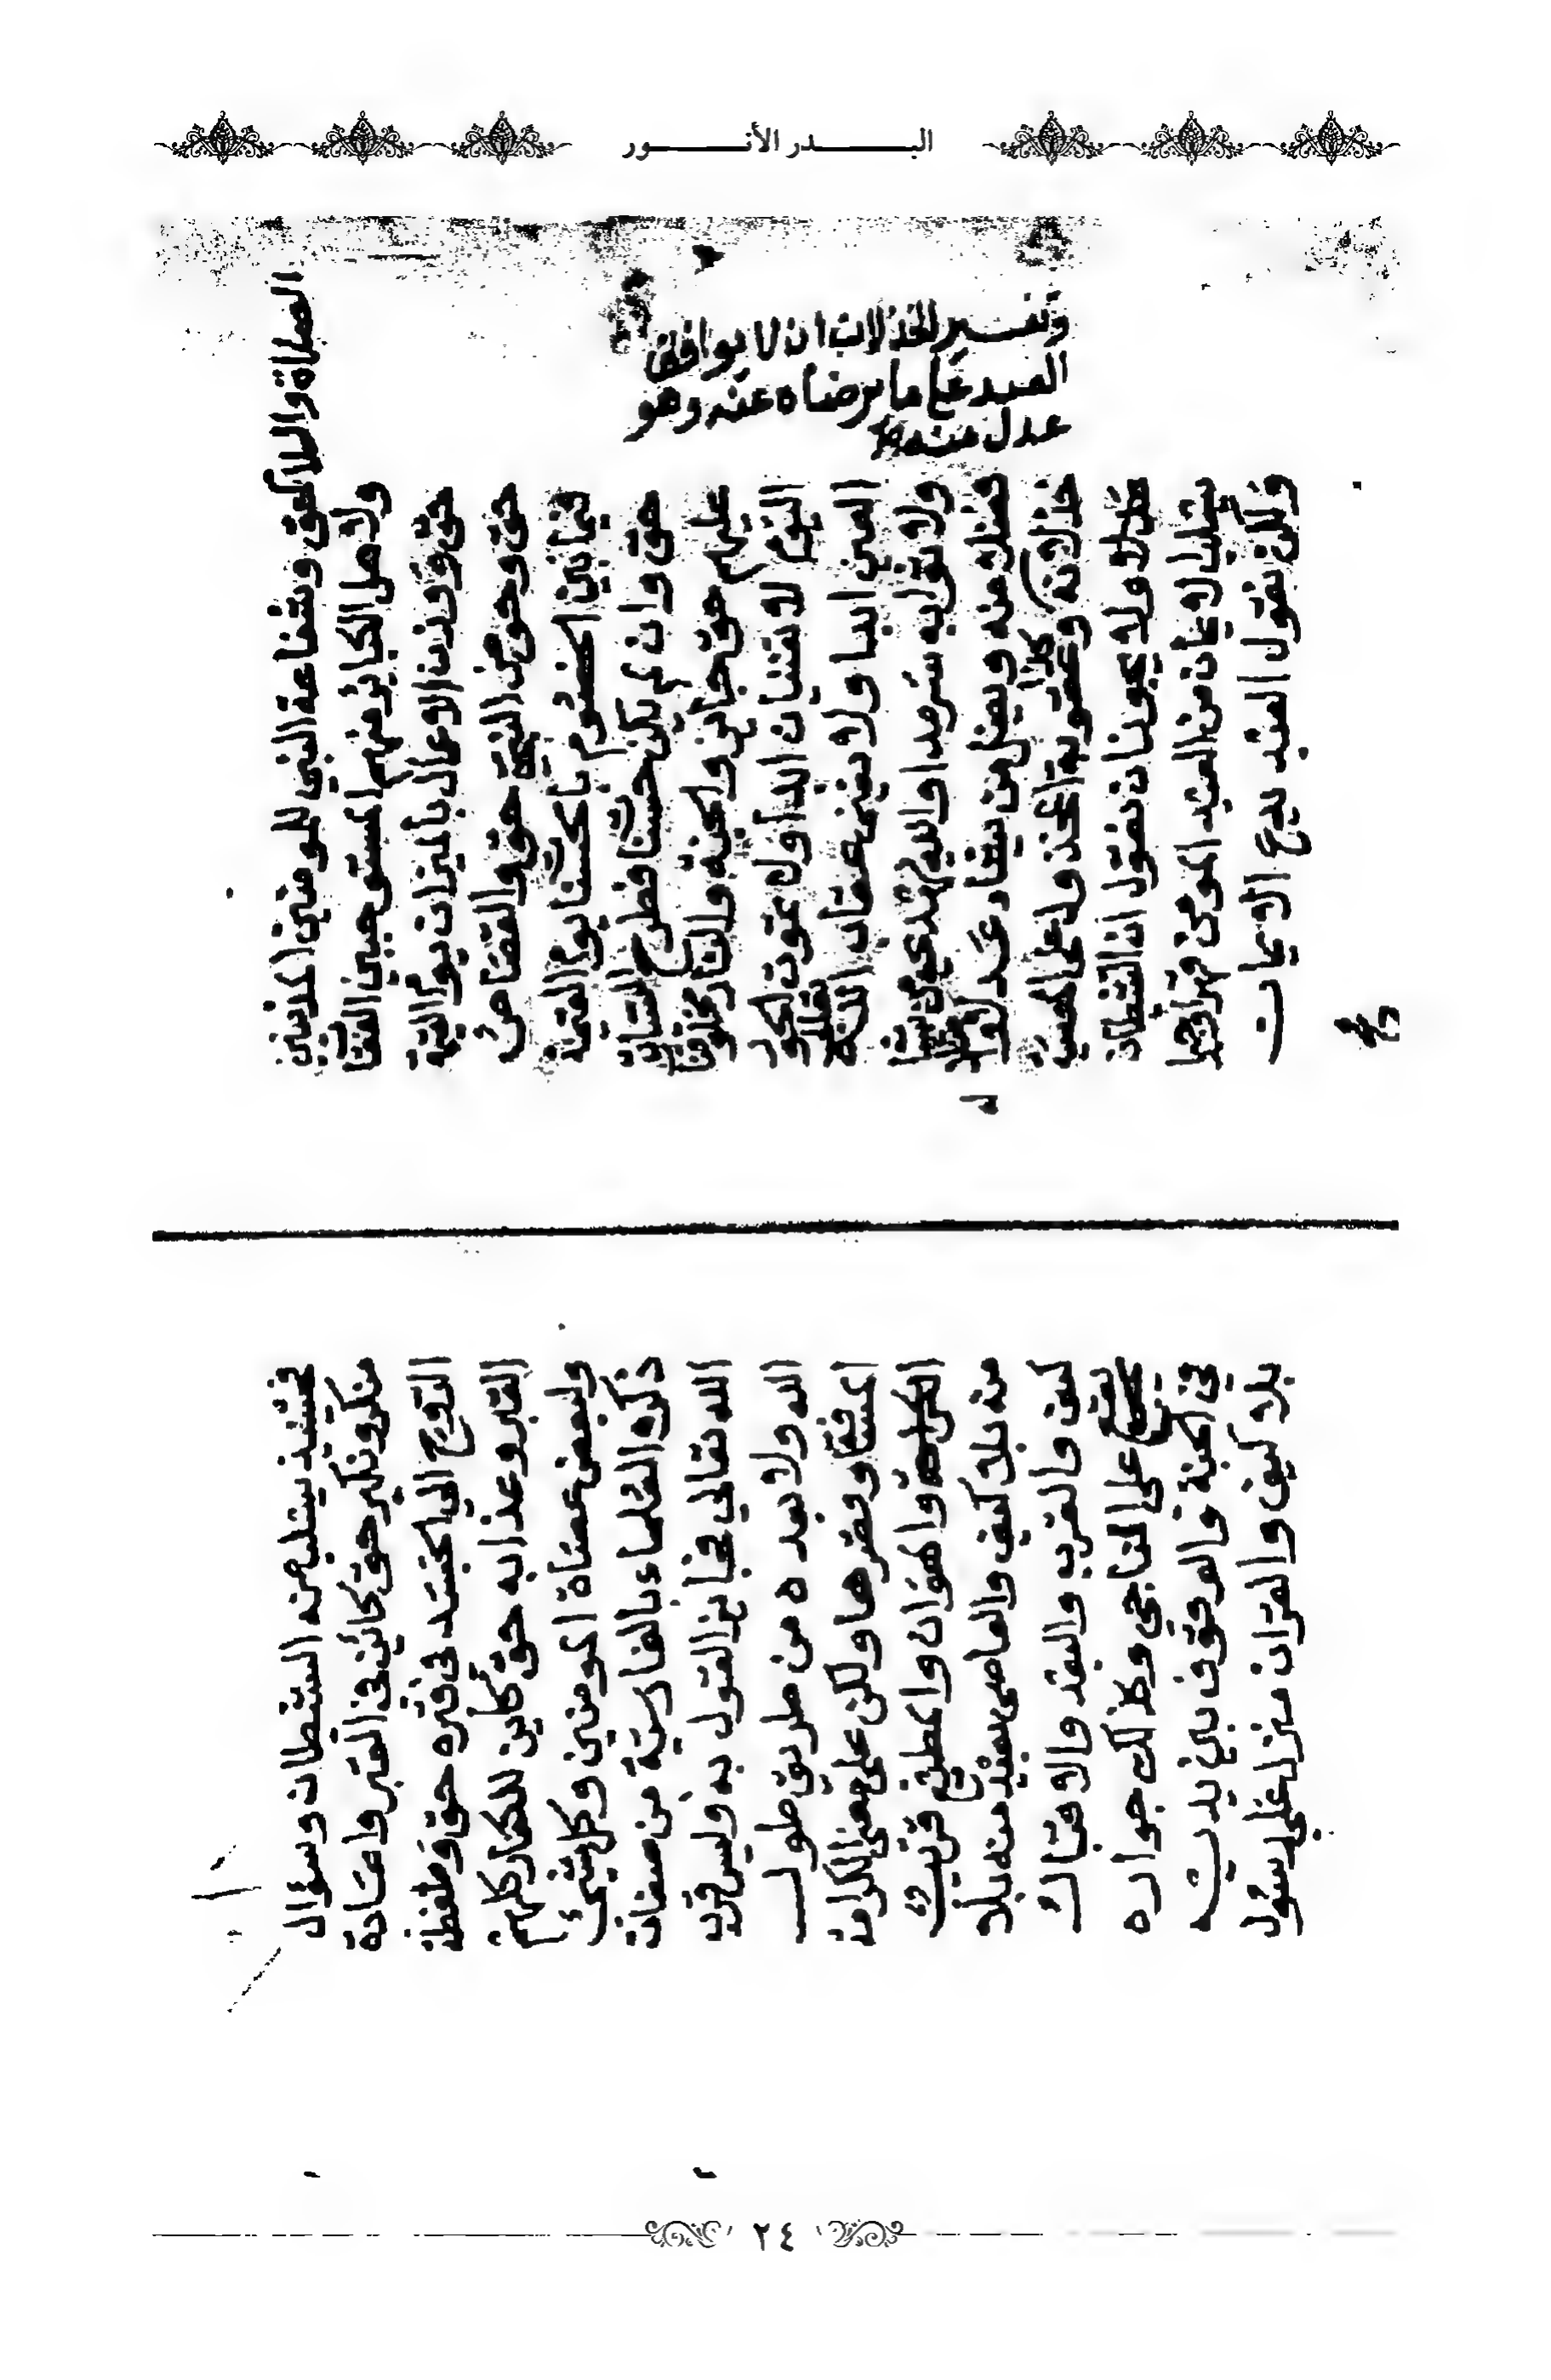 البدر الأنور
وتفسير الخذلان ان لا يوافق
العبد على ما يرضاه عنه وهو
عدل منه
الصلاة والسلام حق وشفاعة النبي للمومنين المذنبين
ولاهل الكبائر منهم المستوجبين العقاب
حق ووزن الاعمال بالميزان يوم القيمة
حق وحوض النبي حق والقصاص
فيما بين الخصوم بالحسنات يوم القيمة
حق وان لم يكن حسنات فطرح السيات
عليهم حق جائز والجنة والنار مخلوقتان
اليوم لا تفنيان ابدا ولا تموت الحور
العين ابدا ولا يفنى عقاب الله تعالى
ولا ثوابه سرمدا والله يهدي من يشا
فضلا منه ويضل من يشاء عدلا
خذلانه كذا وعقوبة المخذول على المعصية
ولا يجوز ان نقول ان الشيطان
يسلب الايمان من العبد المومن قهرا وجبرا
ولكن نقول العبد يدع الايمان
فحينئذ يسلب منه الشيطان وسؤال
منكر ونكير حق كائن في القبر واعادة
الروح الي الجسد في قبره حق وضغطة
القبر وعذابه حق كاين للكفار كلهم
ولبعض عصاة المومنين وكل شيئ
ذكره العلماء بالفارسية من صفات
الله تعالي فجايز القول به وليس قرب
الله ولا بعده من طريق طول
المسافة وقصرها ولكن على معنى الكرامة
والهوان والمطيع قريب
منه بلا كيف والعاصى بعيد منه بلا
كيف والقرب والبعد والاقبال
يقع على المناجي وكذلك جواره
في الجنة والوقوف بين يديه
بلا كيف والقران منزل علي رسول
٢٤